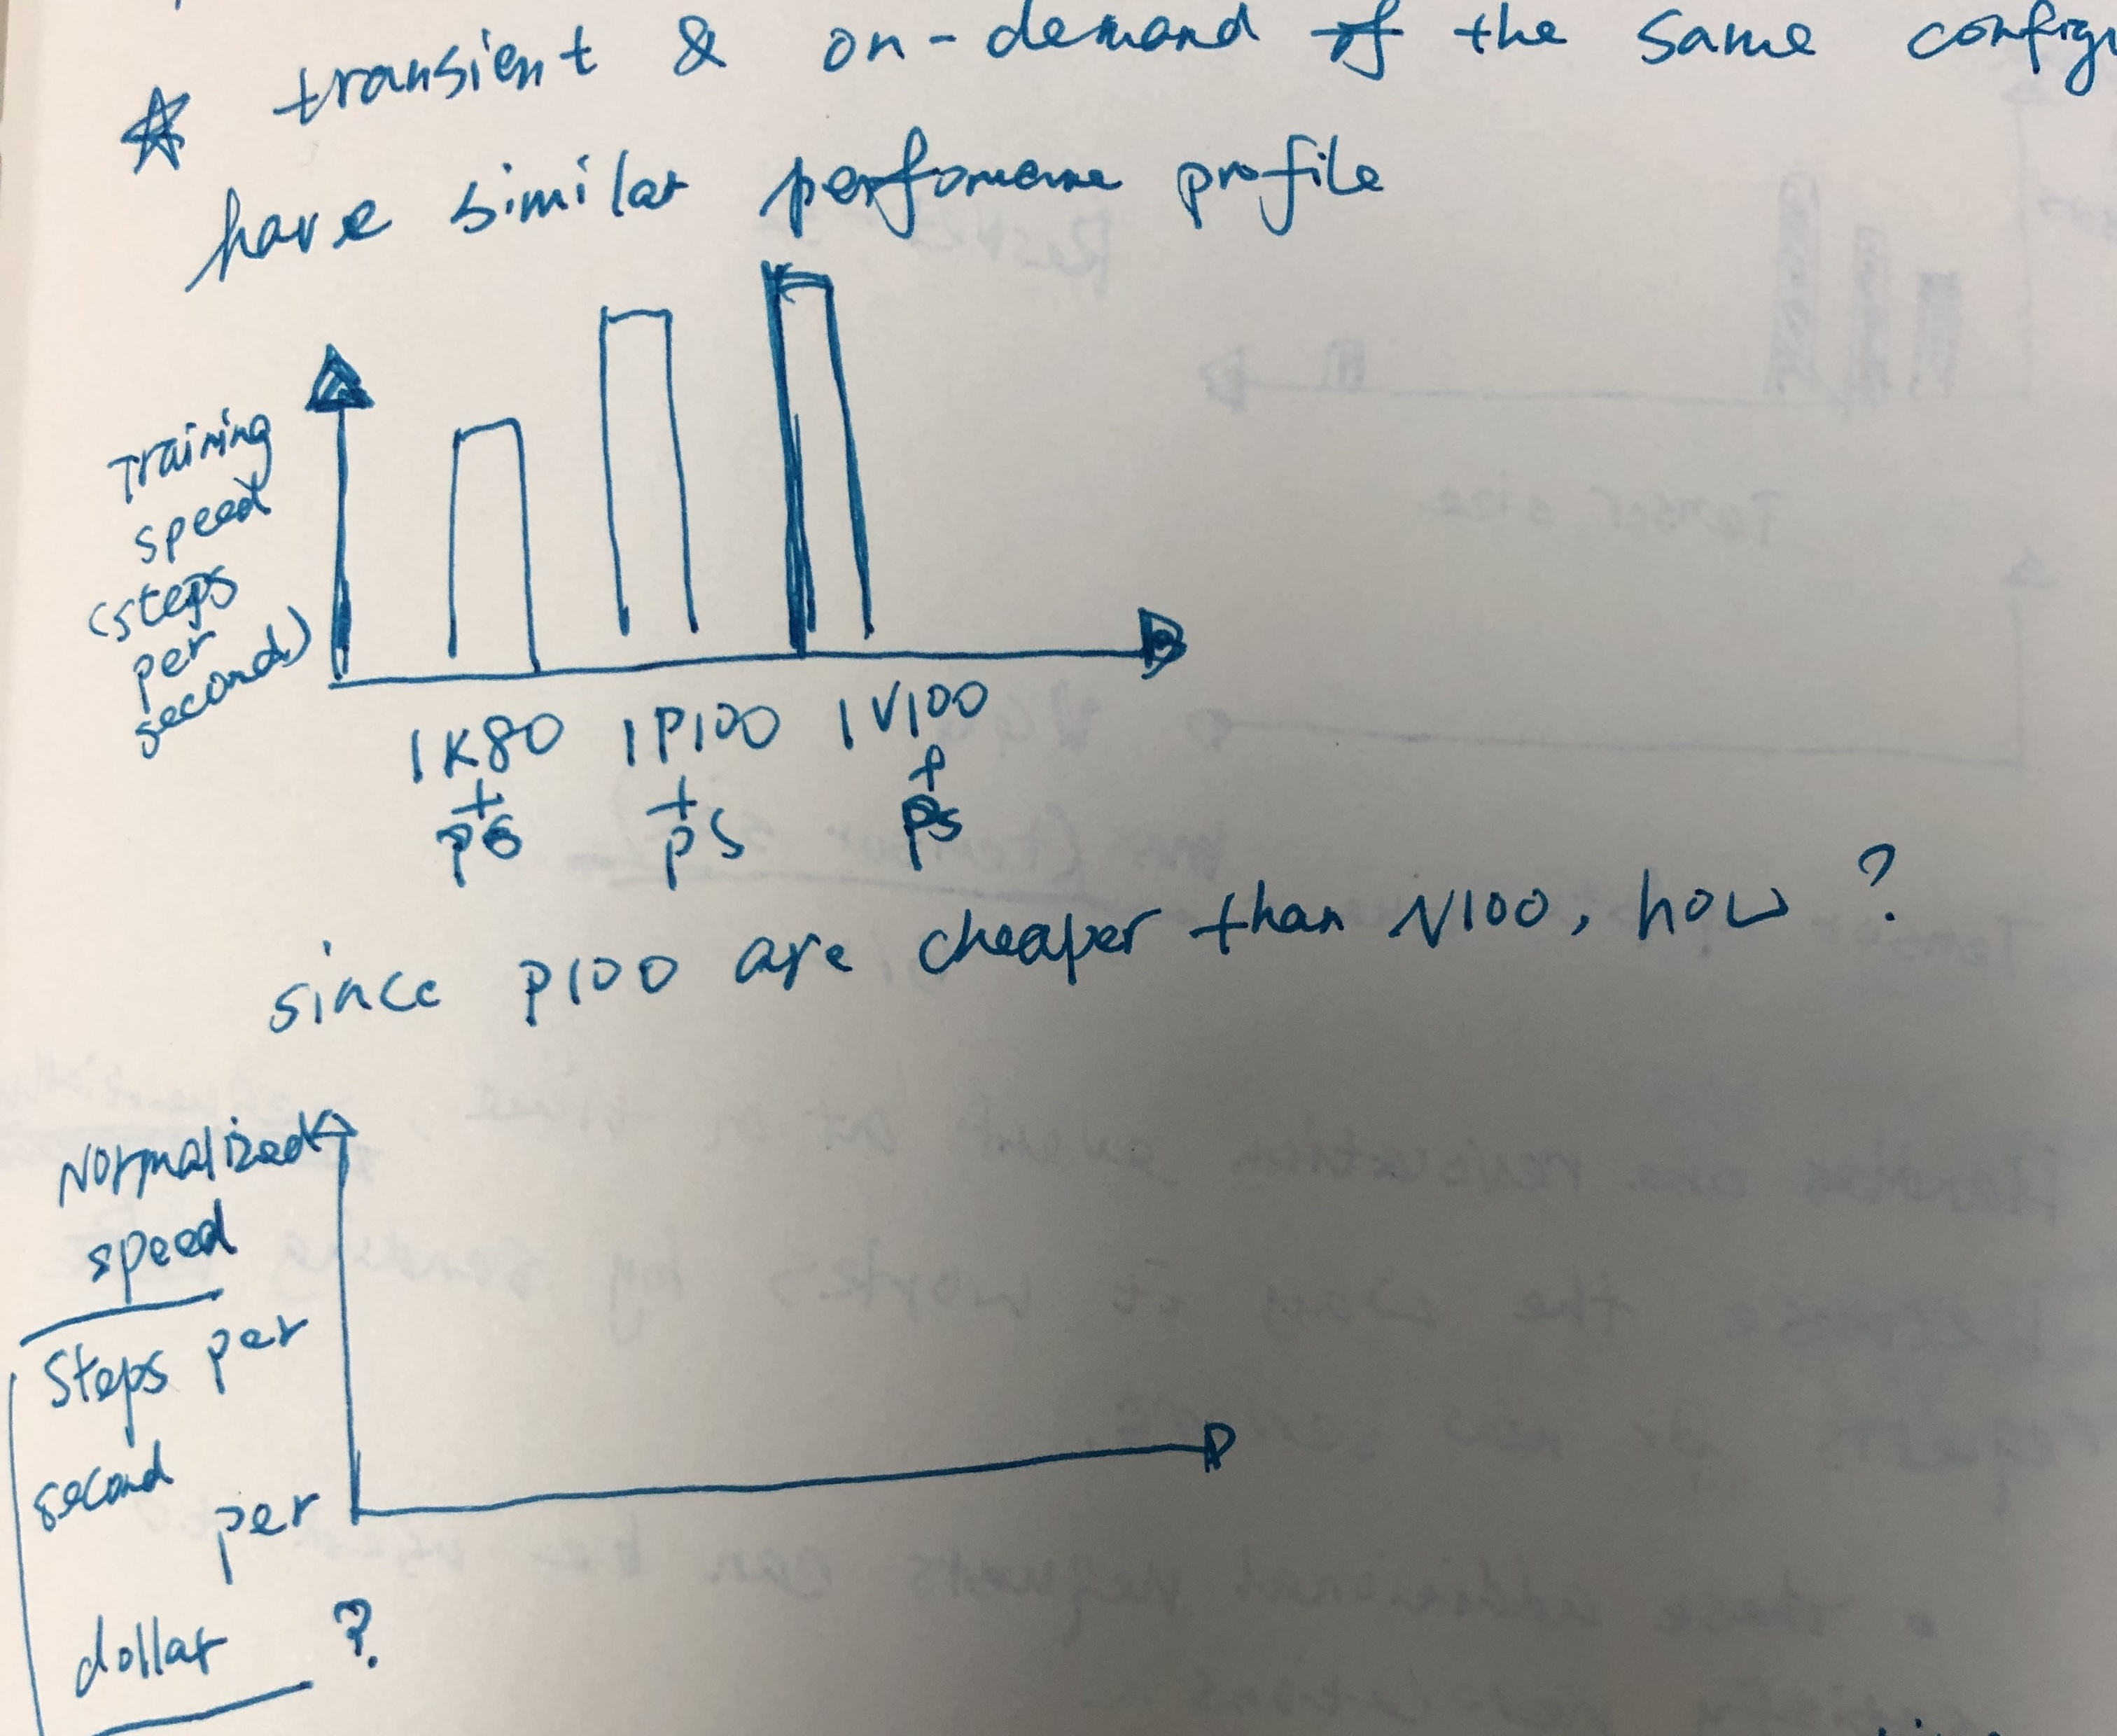 ☆ transient & on-demand of the same
have similar performance profile
Training
speed
(steps
per
second)
1 K80 1 P100 1 V100
+ + +
ps ps ps
since P100 are cheaper than V100, how ?
Normalized
speed
steps per
second
per
dollar ?